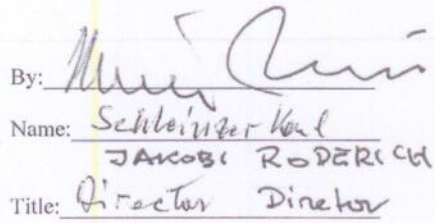 By:
Name: Schleinzer Karl
JAKOBI RODERICH
Title: Director Director